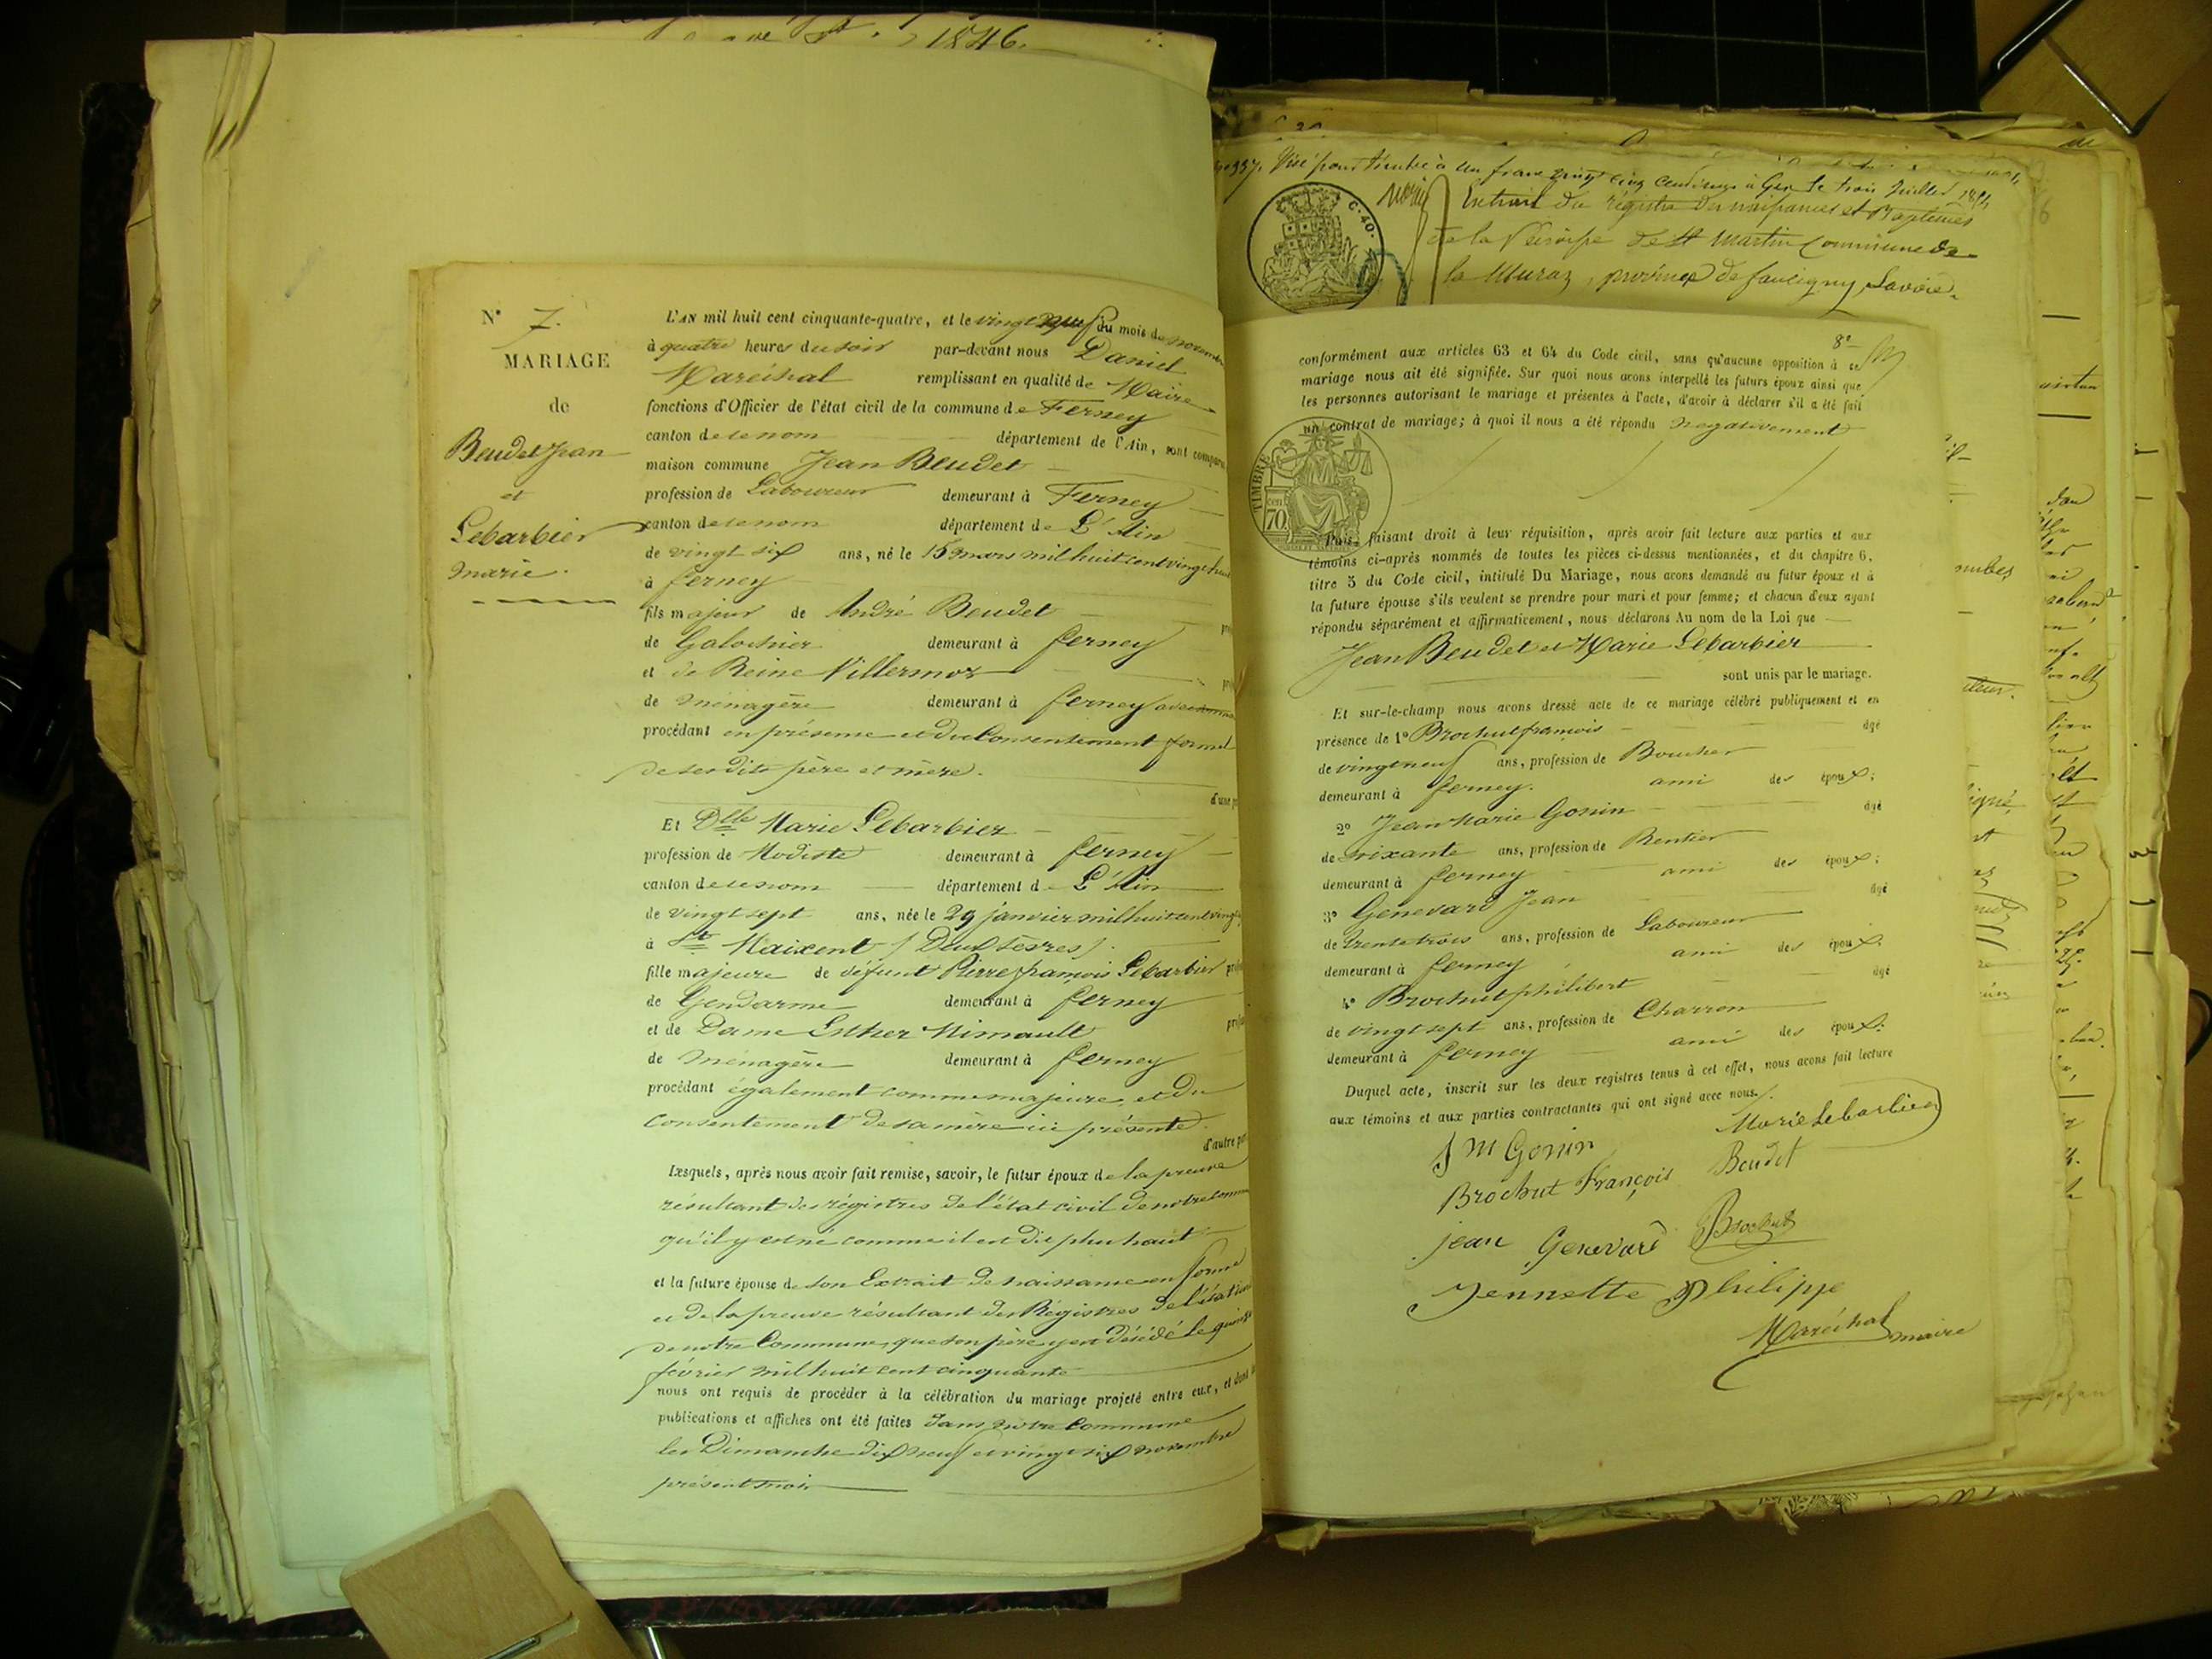 1846.
N° 7.
MARIAGE
de
Beudet Jean
et
Lebarbier
Marie.
L'AN mil huit cent cinquante-quatre, et le vingt neuf du mois de novembre
à quatre heures du soir par-devant nous Daniel
Maréchal remplissant en qualité de Maire
fonctions d'Officier de l'état civil de la commune de Ferney
canton de ce nom département de l'Ain, sont comparu
maison commune Jean Beudet
profession de Laboureur demeurant à Ferney
canton de ce nom département de L'Ain
de vingt six ans, né le 15 mars mil huit cent vingt huit
à ferney
fils majeur de André Beudet
de Galochier demeurant à ferney
et de Reine Villermoz
de ménagère demeurant à ferney
procédant en présence et du Consentement formel
de ses dits père et mère.
d'une p
Et Dlle Marie Lebarbier
profession de Modiste demeurant à ferney
canton de ce nom département de L'Ain
de vingt sept ans, née le 29 janvier mil huit cent vingt
à St Maixent (Deux Sèvres)
fille majeure de défunt Pierre françois Lebarbier
de Gendarme demeurant à ferney
et de Dame Esther Nimault
de Ménagère demeurant à ferney
procédant également comme majeure, et du
consentement de sa mère ici présente.
d'autre par
Lesquels, après nous avoir fait remise, savoir, le futur époux de la preuve
résultant des régistres de l'état civil de notre comm
qu'il y est né comme il est dit plus haut
et la future épouse de son Extrait de naissance en forme
et de la preuve résultant des Régistres de l'état
de notre Commune, que son père y est décédé le quinze
février mil huit cent cinquante
nous ont requis de procéder à la célébration du mariage projeté entre eux, et dont
publications et affiches ont été faites dans notre Commune
les Dimanche dix neuf et vingt six novembre
présent mois
Visé pour timbre à un franc vingt cinq centimes à Gex le trois Juillet 1854
Extrait du régistre des naissances et Baptêmes
de la Paroisse de St Martin Commune de
la Muraz, province de faucigny, Savoie.
C. 40.
8e
conformément aux articles 63 et 64 du Code civil, sans qu'aucune opposition à se
mariage nous ait été signifiée. Sur quoi nous avons interpellé les futurs époux ainsi que
les personnes autorisant le mariage et présentes à l'acte, d'avoir à déclarer s'il a été fait
un contrat de mariage; à quoi il nous a été répondu négativement
TIMBRE
cen
70.
Puis, faisant droit à leur réquisition, après avoir fait lecture aux parties et aux
témoins ci-après nommés de toutes les pièces ci-dessus mentionnées, et du chapitre 6,
titre 5 du Code civil, intitulé Du Mariage, nous avons demandé au futur époux et à
la future épouse s'ils veulent se prendre pour mari et pour femme; et chacun d'eux ayant
répondu séparément et affirmativement, nous déclarons Au nom de la Loi que
Jean Beudet et Marie Lebarbier
sont unis par le mariage.
Et sur-le-champ nous avons dressé acte de ce mariage célébré publiquement et en
présence de 1° Brochut françois âgé
de vingt neuf ans, profession de Boucher
demeurant à ferney. ami des époux;
2° Jean Marie Gonin âgé
de soixante ans, profession de Rentier
demeurant à ferney ami des époux;
3° Genevard Jean âgé
de trente trois ans, profession de Laboureur
demeurant à ferney ami des époux.
4° Brochut philibert âgé
de vingt sept ans, profession de Charron
demeurant à ferney ami des époux.
Duquel acte, inscrit sur les deux registres tenus à cet effet, nous avons fait lecture
aux témoins et aux parties contractantes qui ont signé avec nous.
Marie Lebarbier
J M Gonin
Brochut François Beudet
jean Genevard Brochut
Jennette Philippe
Maréchal maire